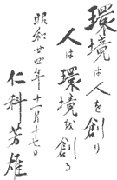 環境は人を創り
人は環境を創る
昭和廿四年十二月十七日
仁科芳雄